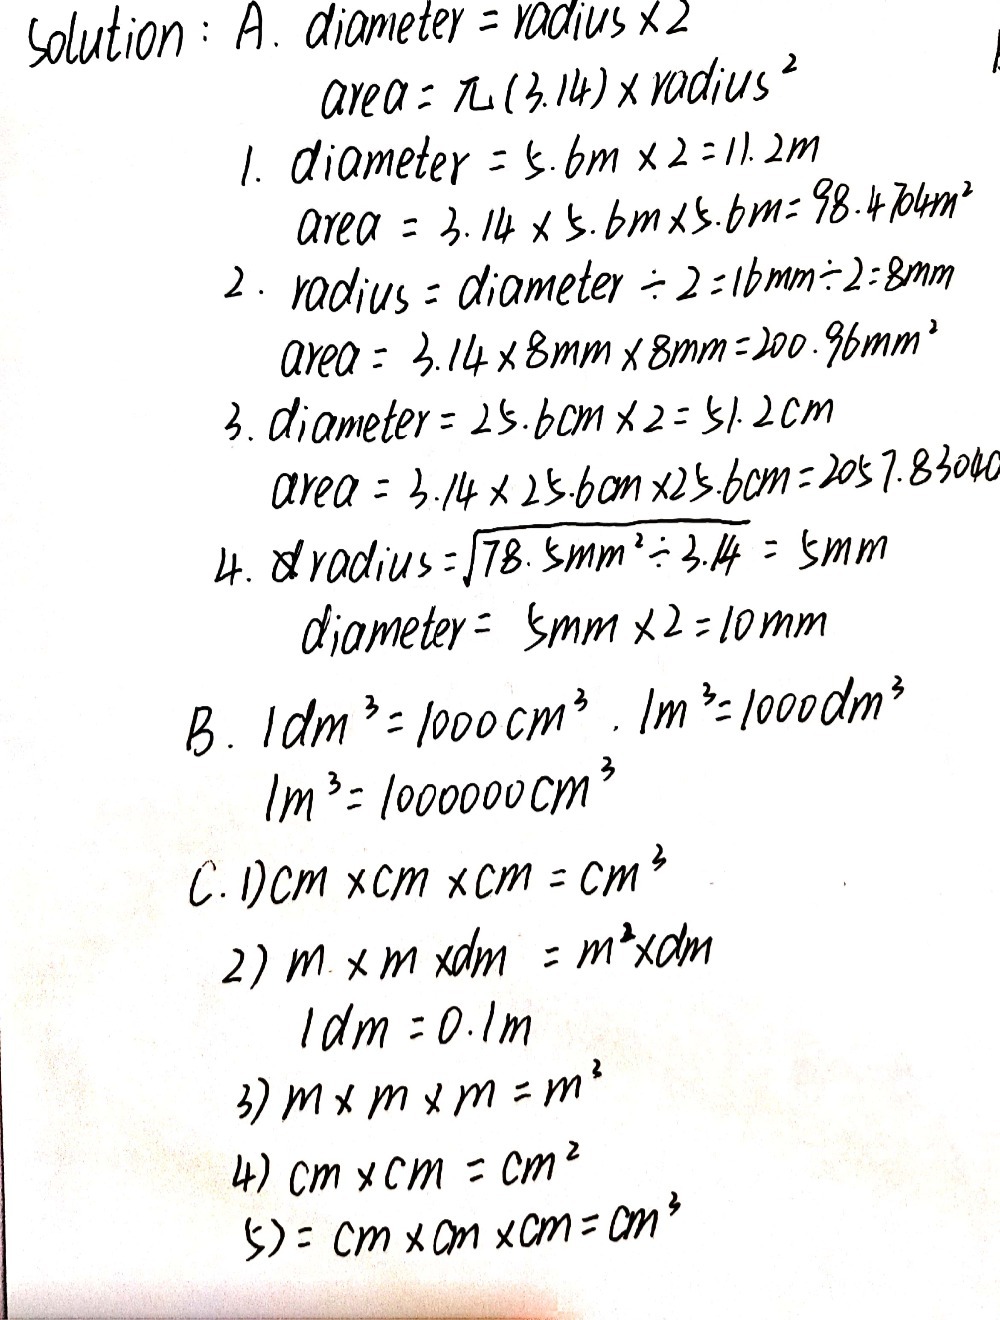 Solution: A. diameter = radius × 2
area = π(3.14) × radius²
1. diameter = 5.6m × 2 = 11.2m
area = 3.14 × 5.6m × 5.6m = 98.4704m²
2. radius = diameter ÷ 2 = 16mm ÷ 2 = 8mm
area = 3.14 × 8mm × 8mm = 200.96mm²
3. diameter = 25.6cm × 2 = 51.2cm
area = 3.14 × 25.6cm × 25.6cm = 2057.8304c
4. radius = √78.5mm² ÷ 3.14 = 5mm
diameter = 5mm × 2 = 10mm
B. 1dm³ = 1000cm³. 1m³ = 1000dm³
1m³ = 1000000cm³
C. 1) cm × cm × cm = cm³
2) m × m × dm = m² × dm
1dm = 0.1m
3) m × m × m = m³
4) cm × cm = cm²
5) = cm × cm × cm = cm³